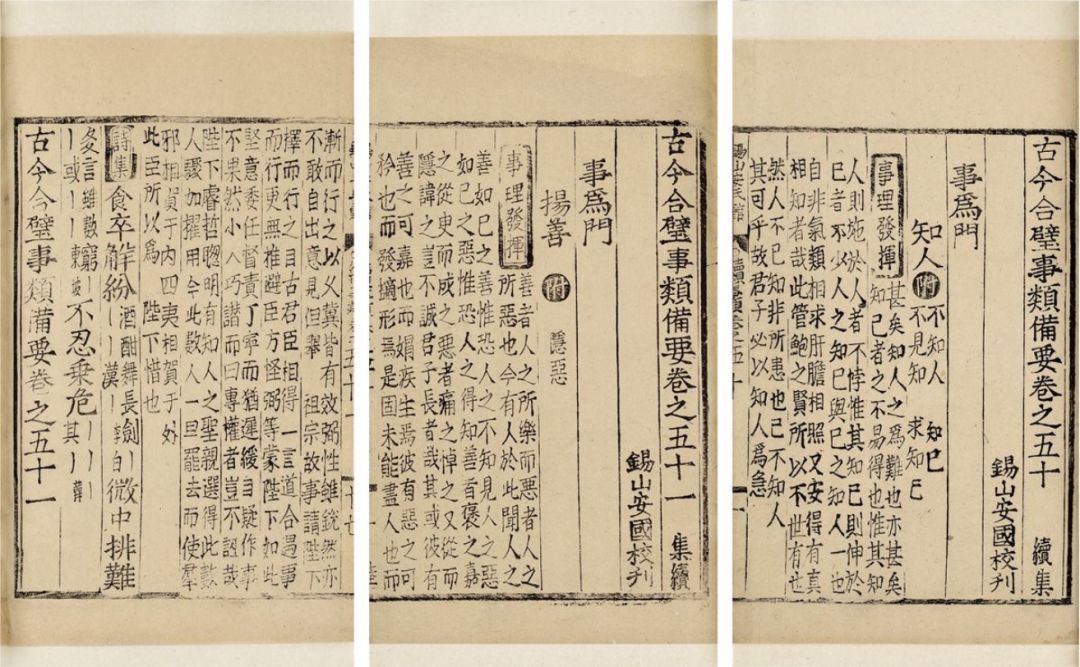 古今合璧事類備要卷之五十 續集
錫山安國校刊
事爲門
知人 附 不知人 知己
不見知 求知己
事理發揮 甚矣知人之爲難也亦甚矣
知己者之不易得也惟其知
人則施於人者不悖惟其知己則伸於
己者不少人之知己與己之知人一也
自非氣類相求肝膽相照又安得有真
相知者哉此管鮑之賢所以不世有也
然人不己知非所患也己不知人
其可乎故君子必以知人爲急
古今合璧事類備要卷之五十一 續集
錫山安國校刊
事爲門
揚善 附 隱惡
事理發揮 善者人之所樂而惡者人之
所惡也今有人於此聞人之
善如己之善惟恐人之不知見人之惡
如己之惡惟恐人之得知善者褒之嘉
之從臾而成之惡者痛之悼之又從而
隱諱之豈不誠君子長者哉其或彼有
善之可嘉也而媢疾生焉彼有惡之可
矜也而發擿形焉是固未能盡人也而
漸而行之以义冀皆有效弼性雖銳然亦
不敢自出意見但舉 祖宗故事請陛下
擇而行之目古君臣相得一言道合遇事
而行更無推避臣方怪弼等蒙陛下如此
堅意委任督責丁寧而猶遲緩自疑作事
不果然小人巧譖而曰專權者豈不誣哉
陛下睿哲聰明有知人之聖親選得此數
人驟加擢用今此數人一旦罷去而使羣
邪相賀于内四夷相賀于外
此臣所以爲 陛下惜也
詩集 食卒解紛酒酣舞長劍丨丨漢丨李白微中排難
多言雖數窮丨丨或丨丨東坡不忍乗危丨丨其丨丨韓
古今合璧事類備要卷之五十一